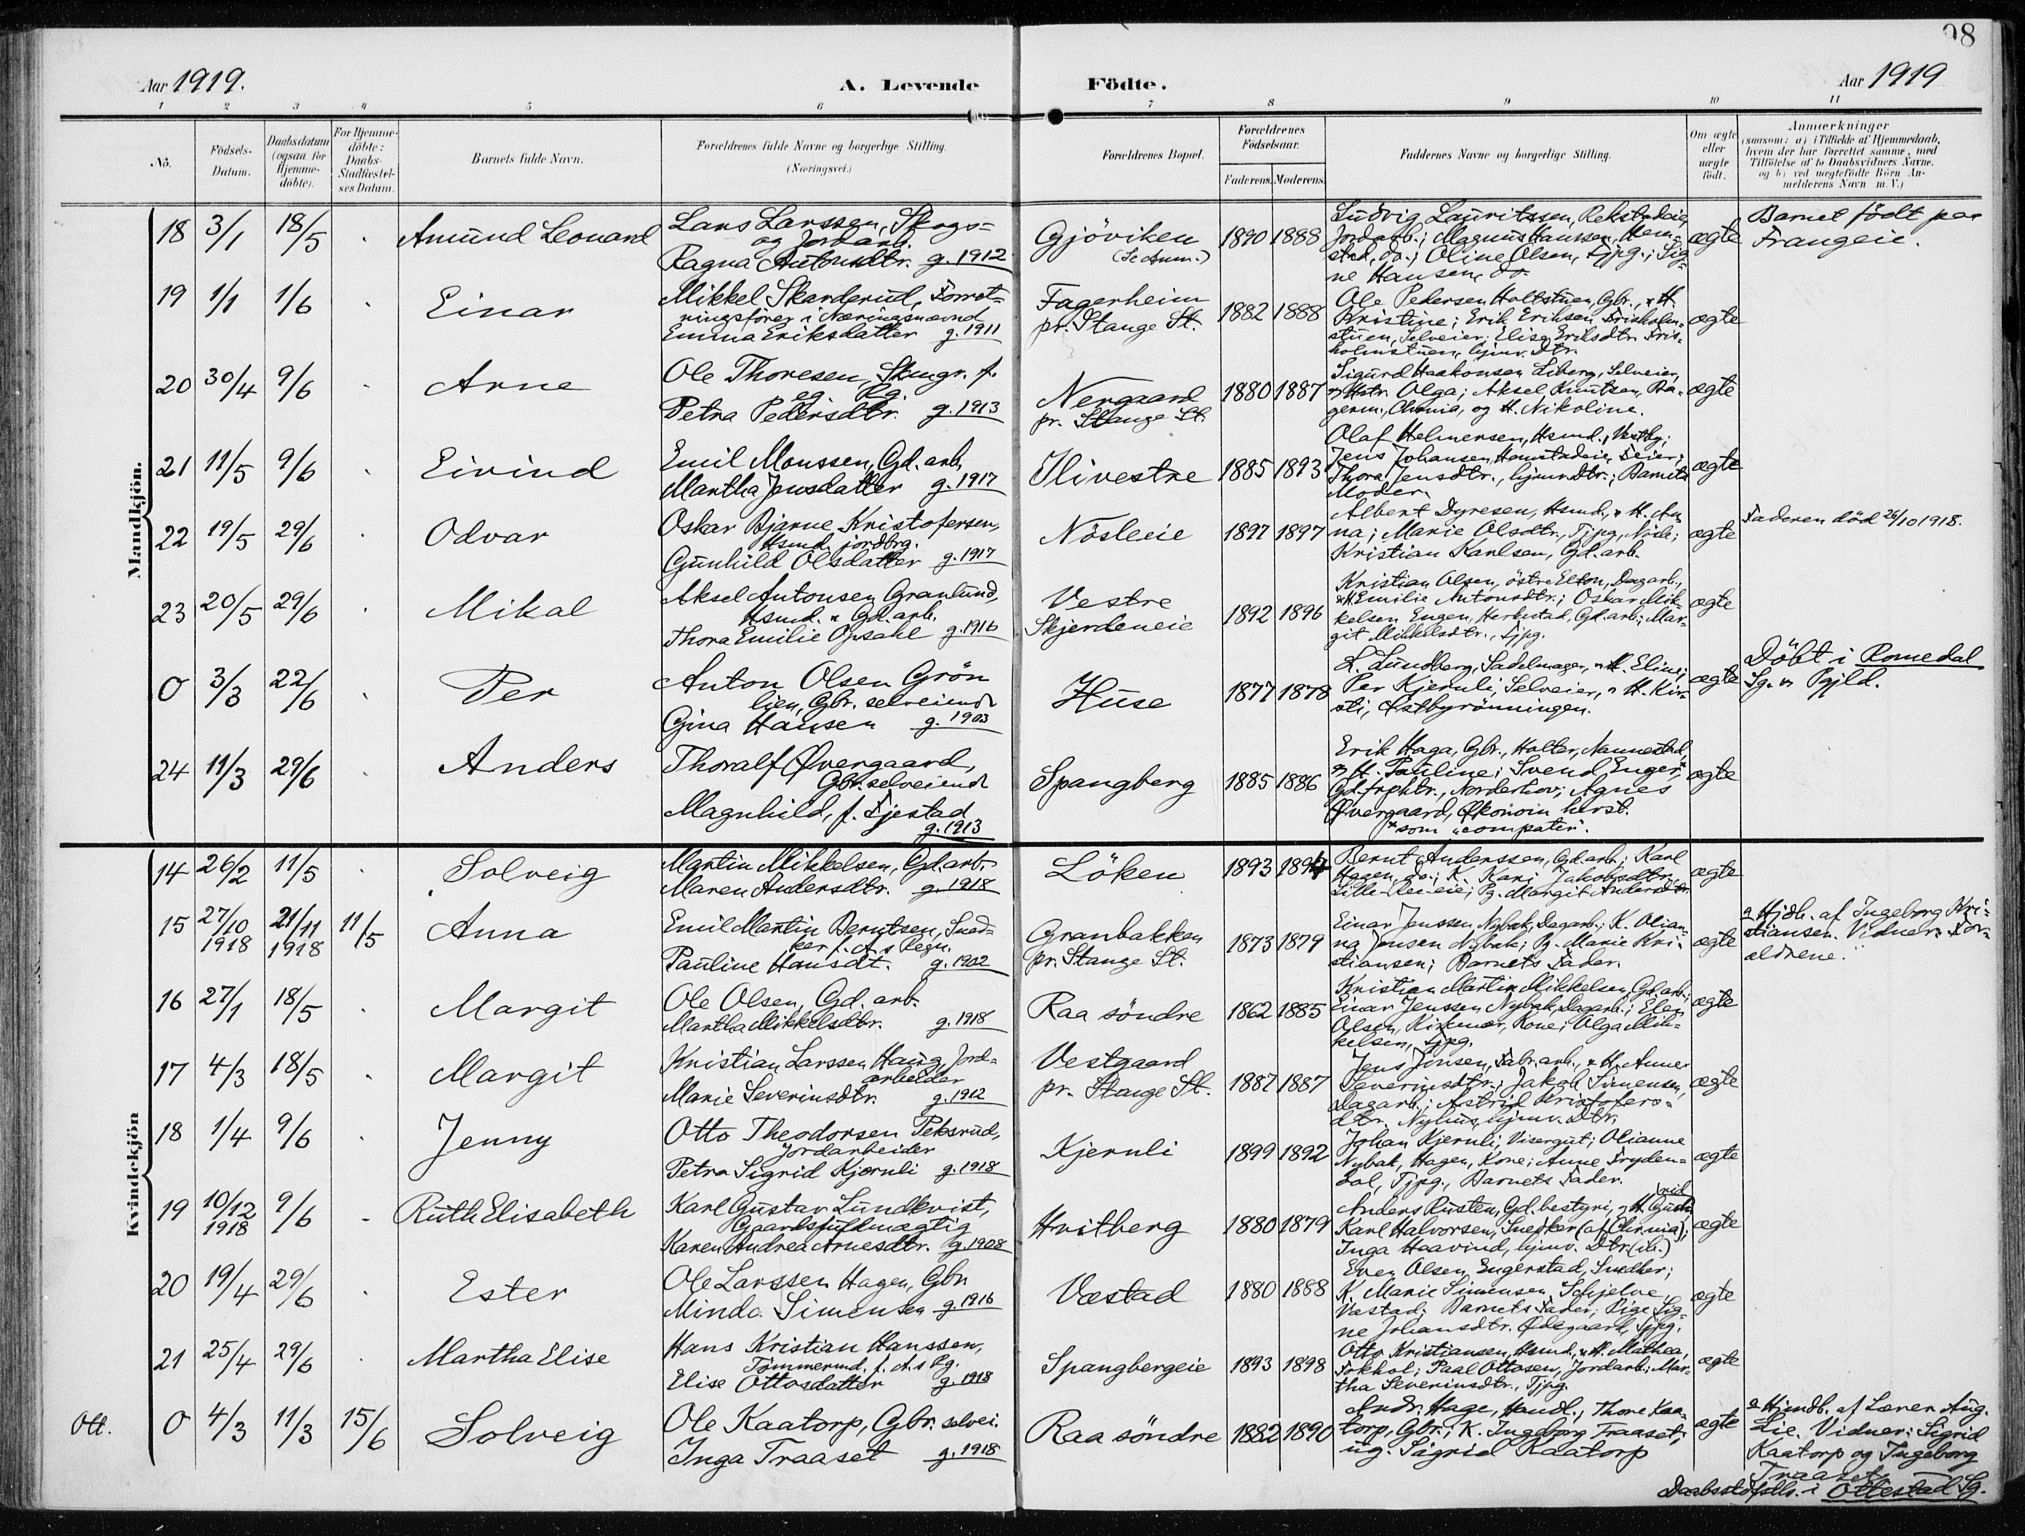 98
Aar 1919.
A. Levende Födte.
Aar 1919
1 2 3 4 5 6 7 8 9 10 11
No.
Födsels-Datum.
Daabsdatum (ogsaa for Hjemme-döbte).
For Hjemme-döbte: Daabs-Stadfæstel-ses Datum.
Barnets fulde Navn.
Forældrenes fulde Navne og borgerlige Stilling.
(Næringsvei.)
Forældrenes Bopæl.
Forældrenes Födselsaar.
Faderens. Moderens.
Faddernes Navne og borgerlige Stilling.
Om ægte eller uægte födt.
Anmærkninger
(saasom: a) i Tilfælde af Hjemmedaab, hvem der har forrettet samme, med Tilföielse af to Daabsvidners Navne, og b) ved uægtefödte Börn An-melderens Navn m. V.)
Mandkjön.
18 3/1 18/5 Amund Leonard
Lars Larssen, Skogs-
og Jordarb.
Ragna Antonsdtr. g. 1912
Gjöviken
(Se Anm.)
1890 1888
Ludvig Lauritssen, Rekstadeie,
Jordarb.; Magnus Hanssen, Hem-
stad, do.; Oline Olsen, Tjpg.; Sig-
ne Hansen, do.
ægte
Barnet födt paa
Frangeie.
19 1/1 1/6 Einar
Mikkel Skarderud, Forret-
ningsförer i Næringsnævnd
Emma Eriksdatter g. 1911
Fagerheim
pr. Stange St.
1882 1888
Ole Pedersen Holtstuen, Gbr., & H.
Kristine; Erik Eriksen Frisholm-
stuen, Selveier; Elise Eriksdtr. Fris-
holmstuen, hjmv. Dtr.
ægte
20 30/4 9/6 Arne
Ole Thoresen,
Petra Pedersdtr. g. 1913
Nergaard
pr. Stange St.
1880 1887
Sigurd Haakonsen Liberg, Selveier,
& Hstr. Olga; Aksel Knutsen, Ba-
germ., Chrnia, og H. Nikoline.
ægte
21 11/5 9/6 Eivind
Emil Monssen, Gd. arb.
Martha Jensdatter g. 1917
Ilivestre
1885 1893
Olaf Helmersen, Hsmd., Vestby;
Jens Johansen, Hemstadeie, Feier;
Thora Jensdtr., hjmv. Dtr.; Barnets
Moder.
ægte
22 19/5 29/6 Odvar
Oskar Bjarne Kristofersen,
Hsmd. jordbrg.
Gunhild Olsdatter g. 1917
Nösleie
1897 1897
Albert Dyresen, Hsmd., & H. An-
na; Marie Olsdtr., Tjpg, Nösle;
Kristian Karlsen, Gd. arb.
ægte
Faderen död 26/10 1918.
23 20/5 29/6 Mikal
Aksel Antonsen Granlund,
Hsmd. & Gd. arb.
Thora Emilie Opsahl g. 1916
Vestre
Skjerdeneie
1892 1896
Kristian Olsen, östre Elton, Dagarb.,
& H. Emilie Antonsdtr.; Oskar Mik-
kelsen Engen, Herkstad, Gd. arb.; Mar-
git Mikkelsdtr., Tjpg.
ægte
0 3/3 22/6 Per
Anton Olsen Grön
lien, Gbr. selveiende
Gina Hansen g. 1903
Huse
1877 1878
L. Lundberg, Sadelmager, & H. Eline;
Per Kjernli, Selveier, & H. Kir-
sti, Østbyrönningen.
ægte
Döbt i Romedal
Sg. & Pgjld.
24 11/3 29/6 Anders
Thoralf Øvergaard,
Gbr. selveiende
Magnhild, f. Fjestad
g. 1913
Spangberg
1885 1886
Erik Haga, Gbr., Holter, Nannestad,
& H. Pauline; Svend Enger,*
Gd. frphtr., Norderhov; Agnes
Øvergaard, Økonoin herst.
* som "compater".
ægte
Kvindekjön
14 26/2 11/5 Solveig
Martin Mikkelsen, Gd. arb.
Maren Andersdtr. g. 1918
Löken
1893 1894
Bernt Anderssen, Gd. arb.; Karl
Hagen, do.; K. Kari Jakobsdtr.
Lille Ileieie; Pg. Margit Andersdtr.
ægte
15 27/10 1918 21/11 1918 11/5 Anna
Emil Martin Berntsen, Sned-
ker f. A. s Regn.
Pauline Hansdt. g. 1902
Granbakken
pr. Stange St.
1873 1879
Einar Jenssen, Nybak, Dagarb.; K. Olian-
na Jensen Nybak; Pg. Marie Kri-
stiansen; Barnets Fader.
ægte
Hjdb. af Ingeborg Kri-
stiansen. Vidner: For-
ældrene.
16 27/1 18/5 Margit
Ole Olsen, Gd. arb.
Martha Mikkelsdtr. g. 1918
Raa söndre
1862 1885
Kristian Martin Mikkelsen, Gd. arb.;
Einar Jenssen Nybak, Dagarb.; Elen
Olsen, Kirkenær, Kone; Olga Mik-
kelsen, Tjpg.
ægte
17 4/3 18/5 Margit
Kristian Larssen Haug, Jord-
arbeider
Marie Severinsdtr. g. 1912
Vestgaard
pr. Stange St.
1887 1887
Jens Jensen, Fabr. arb., & H. Anne
Severinsdtr.; Jakob Simensen,
Dagarb.; Astrid Kristofers-
dtr. Nyhus, hjmv. Dtr.
ægte
18 1/4 9/6 Jenny
Otto Theodorsen Peksrud,
Jordarbeider
Petra Sigrid Kjernli g. 1918
Kjernli
1899 1892
Johan Kjernli, Visergut; Olianne
Nybak, Hagen, Kone; Anne Fryden-
dal, Tjpg., Barnets Fader.
ægte
19 10/12 1918 9/6 Ruth Elisabeth
Karl Gustav Lundkvist,
Gaardsfuldmægtig
Karen Andrea Arnesdtr. g. 1908
Hvitberg
1880 1879
Anders Rusten, Gd. bestyri, & H.
Karl Halvorsen, Snedker (af Chrnia);
Inga Haavind, hjmv. Dtr. (ib.)
ægte
20 19/4 29/6 Ester
Ole Larssen Hagen, Gbr.
Minda Simensen g. 1916
Væstad
1880 1888
Even Olsen, Engerstad, Snedker;
K. Marie Simensen, Schjelve,
Væstad; Barnets Fader; Pige Sig-
ne Johansdtr. Ødegaard, Tjpg.
ægte
21 25/4 29/6 Martha Elise
Hans Kristian Hanssen,
Tömmermd. f. A. s Rg.
Elise Ottosdatter g. 1918
Spangbergeie
1893 1898
Otto Kristiansen, Hsmd., & H. Mathea,
Fokhol; Paal Ottosen, Jordarb.; Mar-
tha Severinsdtr., Tjpg.
ægte
Ott. 0 4/3 11/3 15/6 Solveig
Ole Kaatorp, Gbr. selvei.
Inga Traaset g. 1918
Raa söndre
1882 1890
Andr. Hage, Handl.; Thore Kaa-
torp, Gbr.; K. Ingeborg Traaset;
ug. Sigrid Kaatorp
ægte
Hjmdb. af Lærer Aug.
Lie. Vidner: Sigrid
Kaatorp og Ingeborg
Traaset.
Daabsstdfstls. i Ottestad Sg.